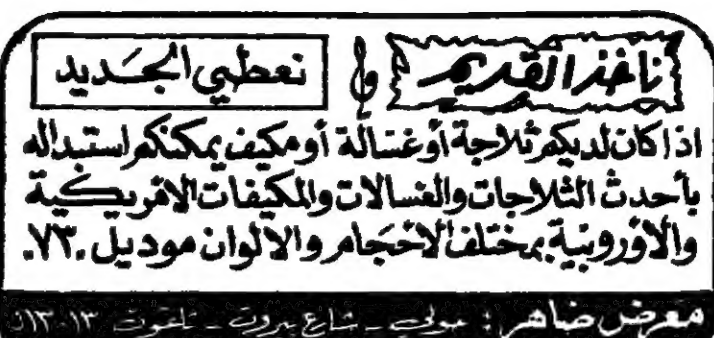 ناخذ القديم و نعطي الجديد
اذا كان لديكم ثلاجة أو غسالة أو مكيف يمكنكم استبداله
بأحدث الثلاجات والغسالات والمكيفات الامريكية
والأوروبية بمختلف الاحجام والالوان موديل ٧٣.
معرض ضاهر : حولي - شارع بيروت - تلفون